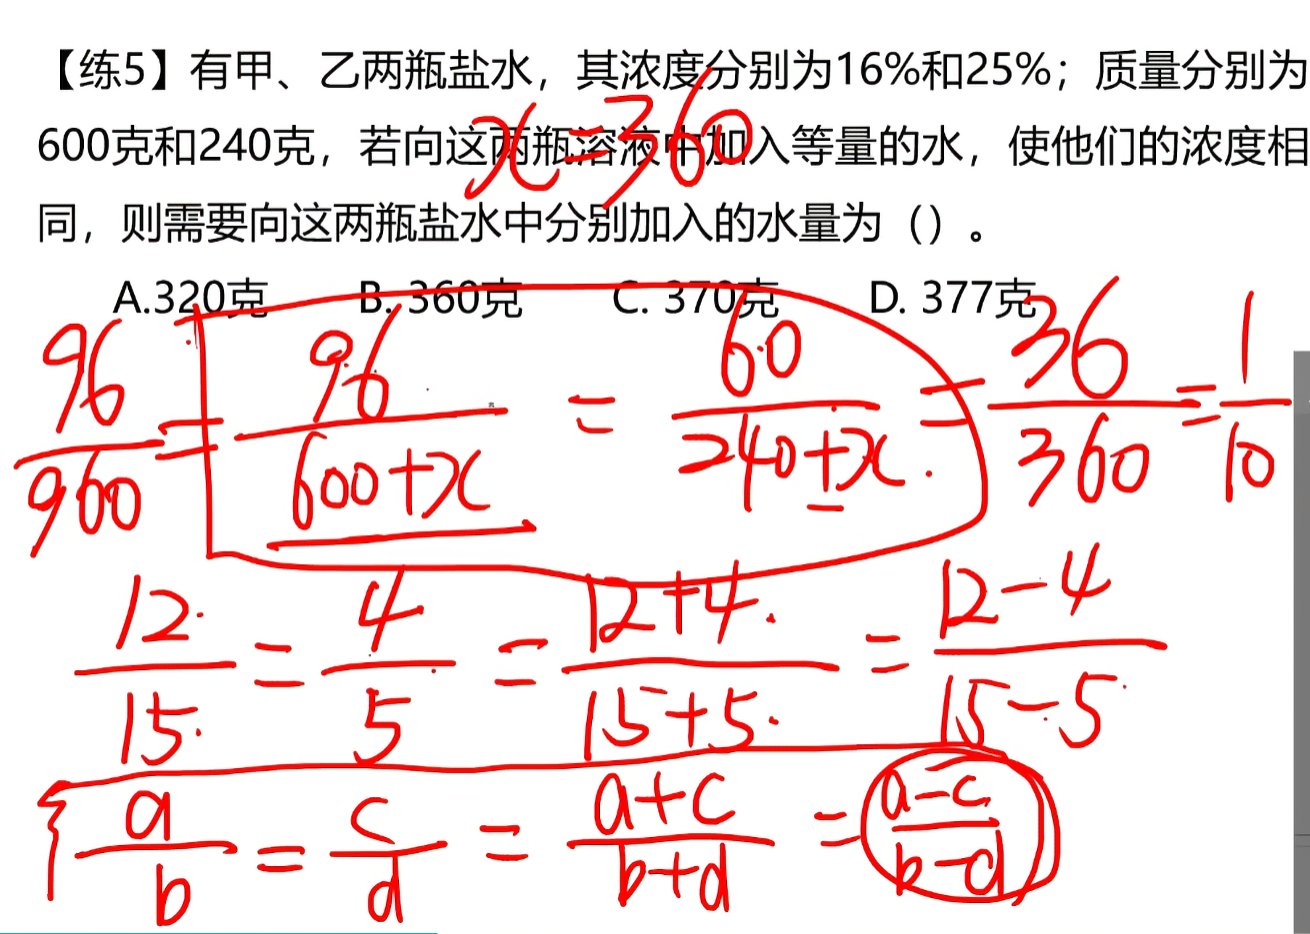 【练5】有甲、乙两瓶盐水，其浓度分别为16%和25%；质量分别为
600克和240克，若向这两瓶溶液中加入等量的水，使他们的浓度相
x=360
同，则需要向这两瓶盐水中分别加入的水量为（）。
A.320克 B. 360克 C. 370克 D. 377克
96/960 = 96/(600+x) = 60/(240+x) = 36/360 = 1/10
12/15 = 4/5 = (12+4)/(15+5) = (12-4)/(15-5)
a/b = c/d = (a+c)/(b+d) = (a-c)/(b-d)